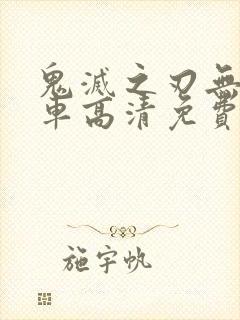 鬼滅之刃無
車高清免費
施宇帆